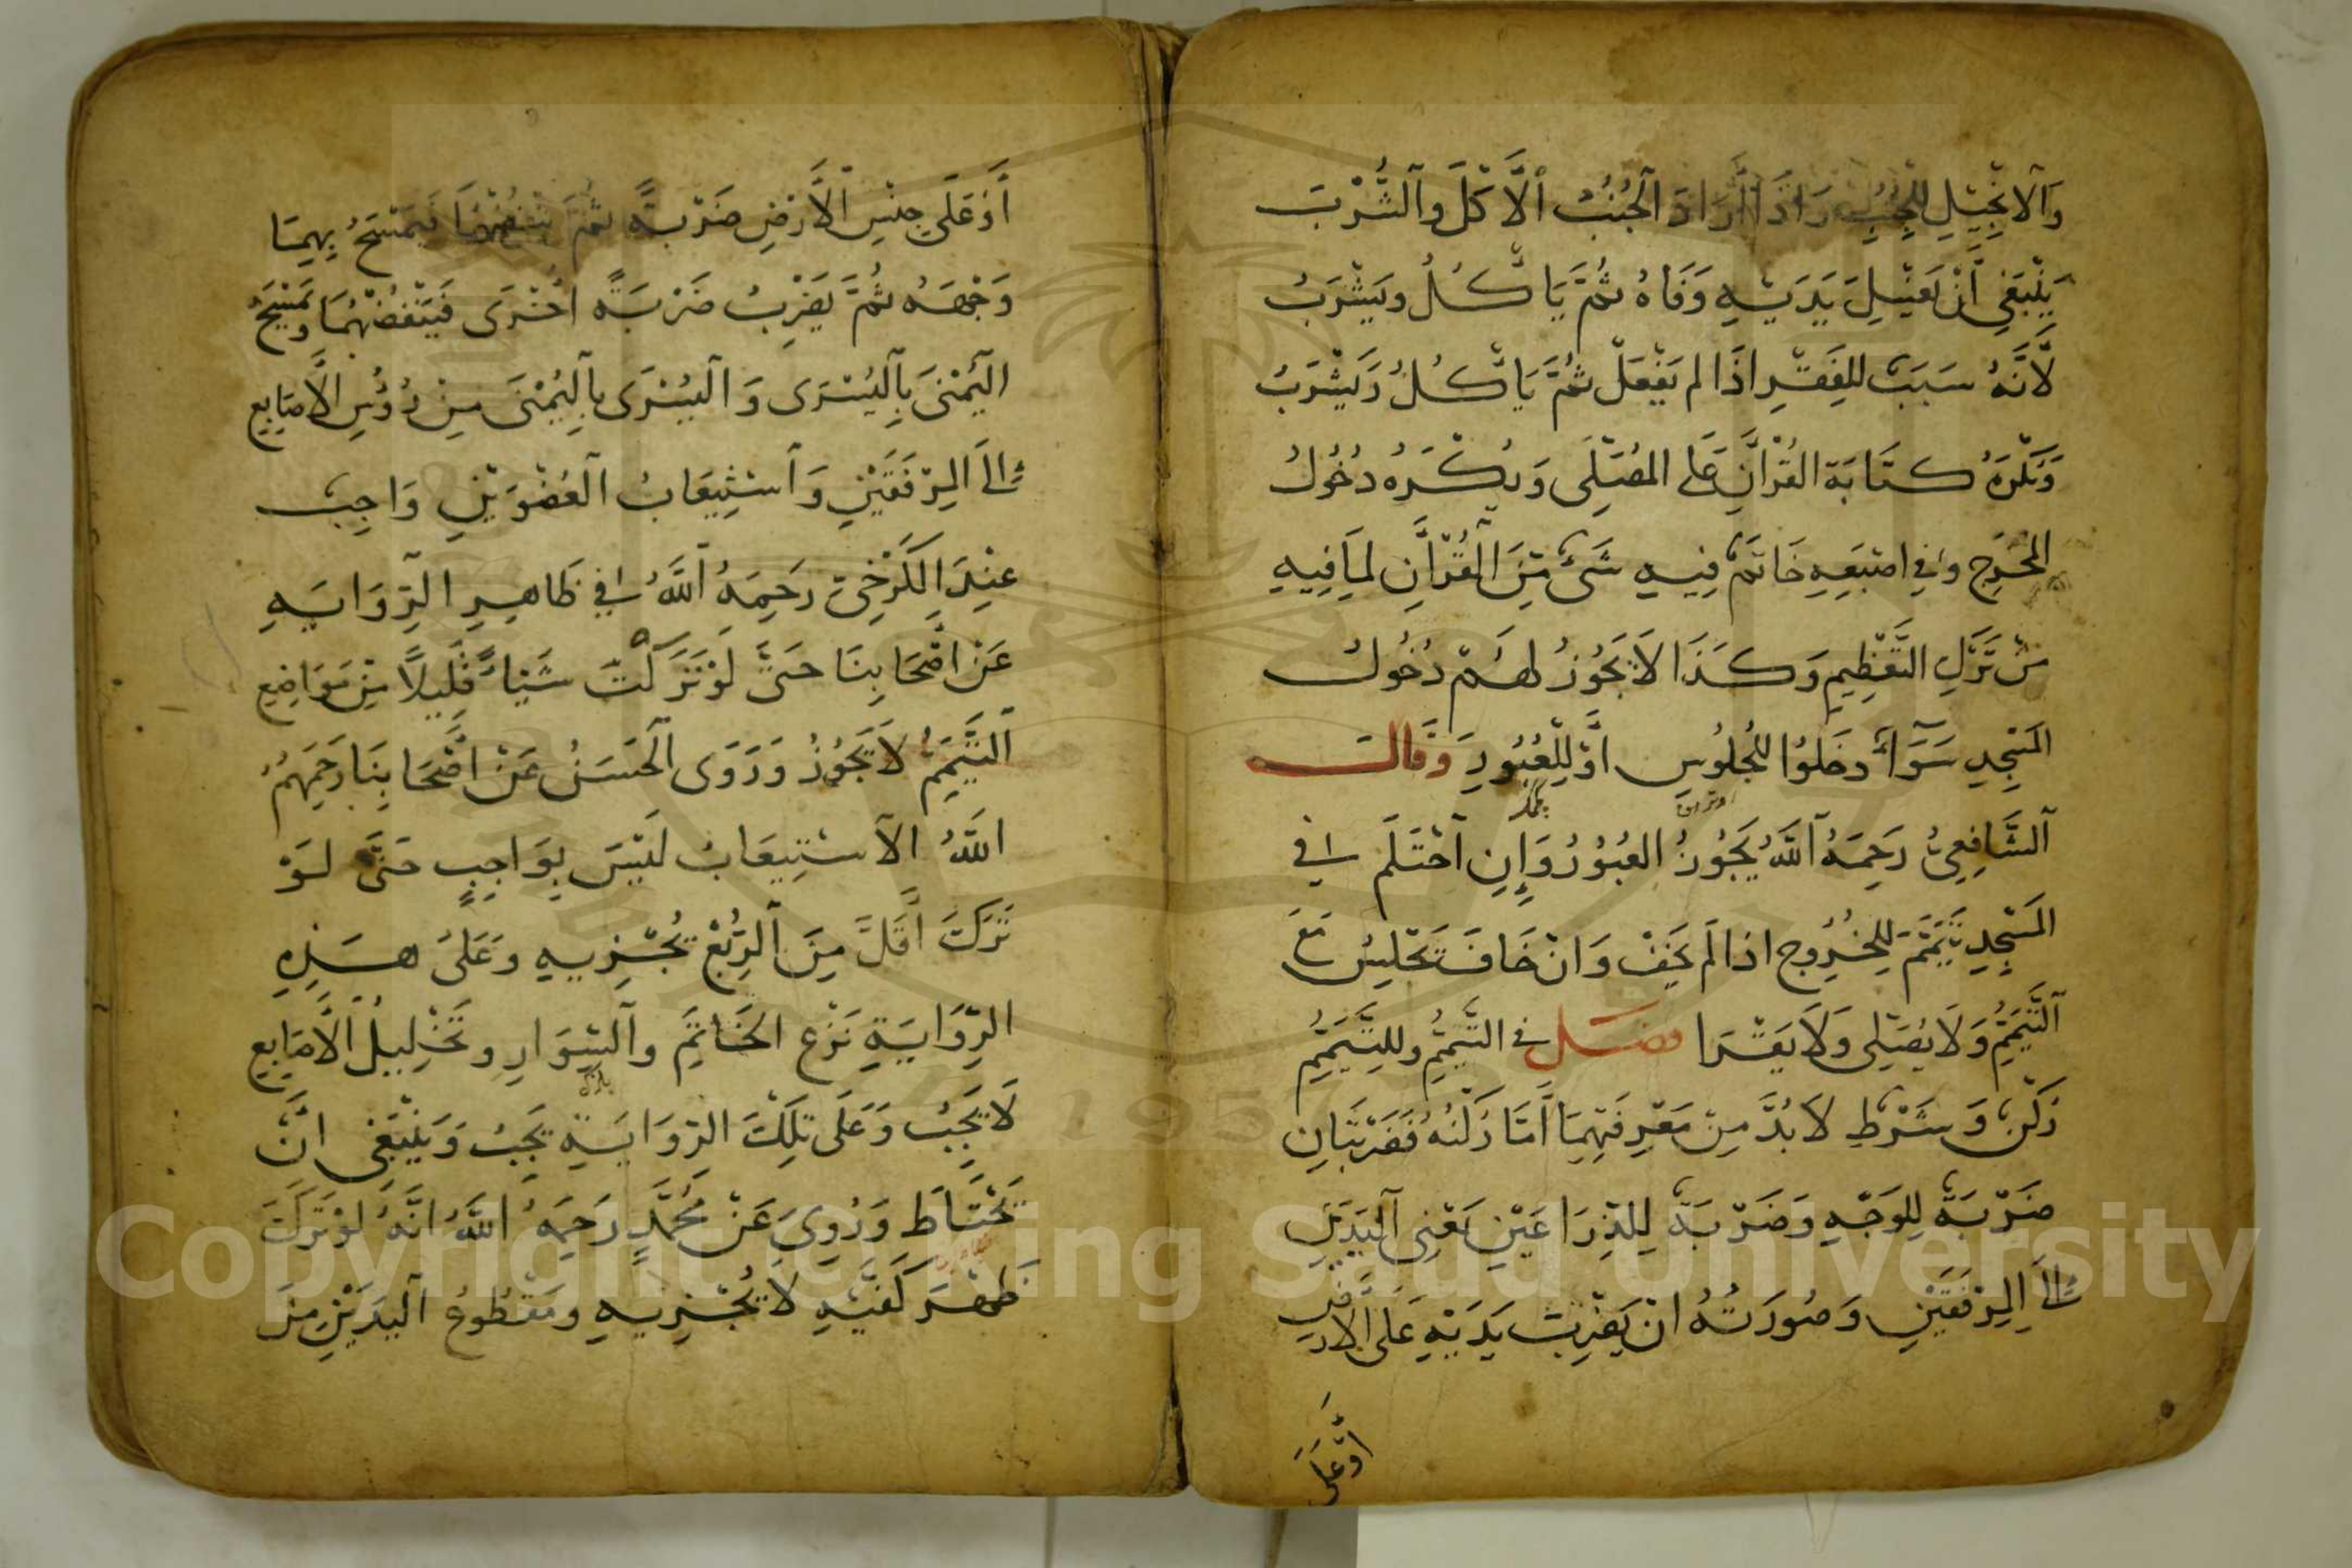 وَالاِنْجِيْلِ لِلْجُنُبِ وَاِذَا اَرَادَ الْجُنُبُ الْاَكْلَ وَالشُّرْبَ
يَنْبَغِي اَنْ يَغْسِلَ يَدَيْهِ وَفَاهُ ثُمَّ يَاْكُلُ وَيَشْرَبُ
لِاَنَّهُ سَبَبٌ لِلْفَقْرِ اِذَا لم يَفْعَلْ ثُمَّ يَاْكُلُ وَيَشْرَبُ
وَيُكْرَهُ كِتَابَة القُرْاٰنِ عَلى المصَلَّى وَيُكْرَهُ دُخُولُ
المخْرَجِ وفِي اصْبَعِهِ خَاتَمٌ فِيهِ شَىْءٌ مِنَ الْقُرْاٰنِ لِمَا فِيهِ
مِنْ تَرْكِ التَّعْظِيمِ وَكَذَا لَا يَجُوزُ لَهُمْ دُخُولُ
المَسْجِدِ سَوَآءٌ دَخَلُوا لِلْجُلُوسِ اَوْ لِلْعُبُورِ وَقَالَ
الشَّافِعِىُّ رَحِمَهُ اللَّهُ يَجُوزُ العُبُوْرُ وَإِنِ احْتَلَمَ فِي
المَسْجِدِ تَيَمَّمَ لِلْخُرُوجِ اذا لَم يَخَفْ وَانْ خَافَ يَجْلِسُ مَعَ
التَّيَمُّمِ وَلَا يُصَلِّى وَلَا يَقْرَا فصل في التَّيَمُّمِ ولِلتَّيَمُّمِ
رُكْنٌ وَشَرْطٌ لَا بُدَّ مِنْ مَعْرِفَتِهِمَا اَمَّا رُكْنُهُ فَضَرْبَتَانِ
ضَرْبَةٌ لِلوَجْهِ وَضَرْبَةٌ لِلذِّرَاعَيْنِ يَعْنِى الْيَدَيْنِ
اِلَى الِمرْفَقَيْنِ وَصُورَتُهُ انْ يَضْرِبَ يَدَيْهِ عَلَى الْاَرْضِ
اَوْ عَلَى
اَوْ عَلَى جِنْسِ الْاَرْضِ ضَرْبَةً ثُمَّ يَنْفُضُهُمَا فَيَمْسَحُ بِهِمَا
وَجْهَهُ ثُمَّ يَضْرِبُ ضَرْبَةً اُخْرَى فَيَنْفُضُهُمَا وَيَمْسَحُ
الْيُمْنَى بِالْيُسْرَى وَالْيُسْرَى بِالْيُمْنَى مِنْ رُؤُسِ الْاَصَابِعِ
اِلَى الِمرْفَقَيْنِ وَاسْتِيعَابُ الْعُضْوَيْنِ وَاجِبٌ
عِنْدَ الْكَرْخِىِّ رَحِمَهُ اللَّهُ فِي ظَاهِرِ الرِّوَايَةِ
عَنْ اَصْحَابِنَا حَتَّى لَوْ تَرَكْتَ شَيْئًا قَلِيلًا مِنْ مَوَاضِعِ
التَّيَمُّمِ لَا يَجُوزُ وَرَوَى الْحَسَنُ عَنْ اَصْحَابِنَا رَحِمَهُمُ
اللَّهُ الاسْتِيعَابُ لَيْسَ بِوَاجِبٍ حَتَّى لَوْ
تَرَكَتَ اَقَلَّ مِنَ الرُّبْعِ يُجْزِيهِ وَعَلَى هَذِهِ
الرِّوَايَةِ نَزْعُ الخَاتَمِ وَالسِّوَارِ وَتَخْلِيلُ الْاَصَابِعِ
لَا يَجِبُ وَعَلَى تِلْكَ الرِّوَايَةِ يَجِبُ وَيَنْبَغِى انْ
يَحْتَاطَ وَرُوِىَ عَنْ مُحَمَّدٍ رَحِمَهُ اللَّهُ انَّهُ لَوْ تَرَكَ
ظَهْرَ كَفَّيْهِ لَا يُجْزِيهِ وَمَقْطُوعُ الْيَدَيْنِ مِنَ
Copyright © King Saud University
1957